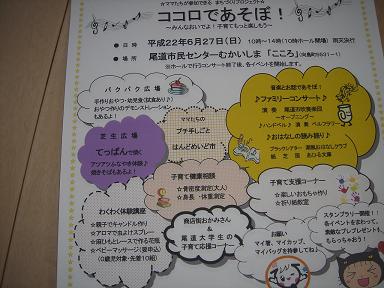 ☆ママたちが参加できる まちづくりプロジェクト☆
ココロであそぼ！
～みんなおいでよ！子育てもっと楽しもう～
日時 平成22年6月27日(日) 10時～14時(10時ホール開場) 雨天決行
場所 尾道市民センターむかいしま「こころ」(向島町5531-1)
※ホールで行うコンサート終了後、各イベントを開始します。
パクパク広場
手作りおやつ・幼児食(試食あり♪)
おやつ作りのデモンストレーション
もあるよ！
芝生広場
てっぱんで焼く
アツアツふなやき体験♪
焼きそばもあるよ！
ママたちの
プチ手しごと
＆
はんどめいど市
音楽とお話であそぼ！
♪ファミリーコンサート♪
演奏 尾道市吹奏楽団
～オープニング～
♪ハンドベル♪ 演奏 ベルフラワー
♪おはなしの読み語り♪
ブラックシアター 潮風おはなしクラブ
紙芝居 あひる文庫
子育て健康相談
☆骨密度測定(大人)
☆身長・体重測定
子育て支援コーナー
☆楽しいおもちゃ作り
☆折り紙教室
わくわく体験講座
☆親子でキャンドル作り
☆アロマで虫よけスプレー
☆麻ひもとレースで作る花瓶
☆ベビーマッサージ(要申込)
(0歳児対象・先着10組)
商店街おかみさん
＆
尾道大学生の
子育て応援コーナー
お願い
マイ箸、マイカップ、
マイバッグを持参してね♪
スタンプラリー開催！！
各イベントをまわって、
素敵なプレゼントを
もらっちゃおう！